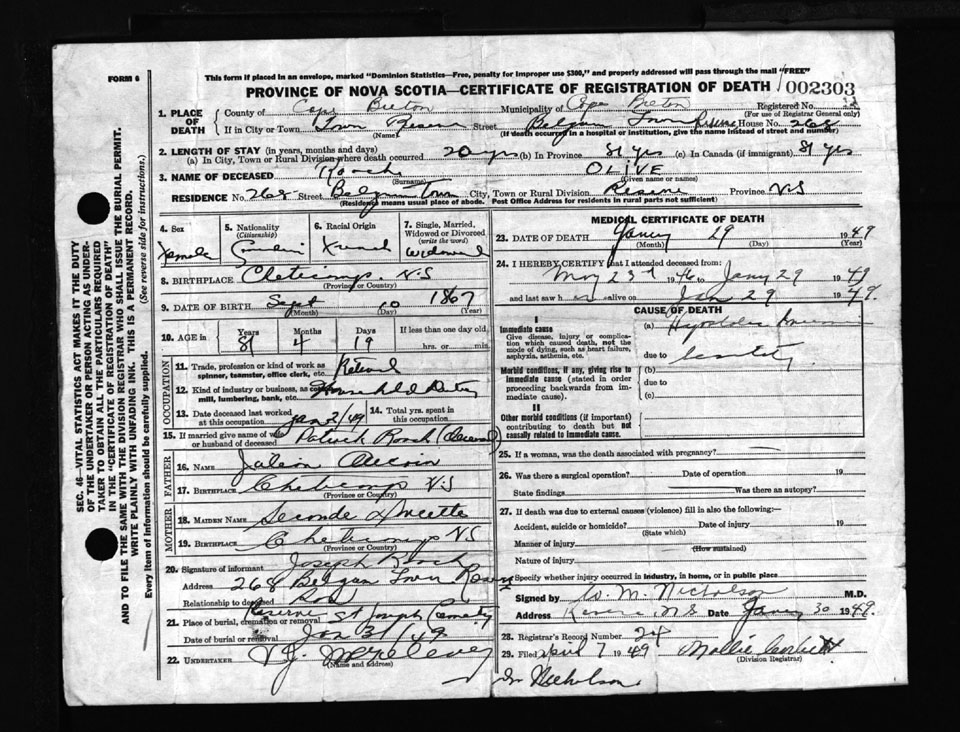 FORM 6
This form if placed in an envelope, marked "Dominion Statistics—Free, penalty for improper use $300," and properly addressed will pass through the mail "FREE"
PROVINCE OF NOVA SCOTIA—CERTIFICATE OF REGISTRATION OF DEATH
002303
1. PLACE OF DEATH
County of Cape Breton Municipality of Cape Breton Registered No.
(For use of Registrar General only)
If in City or Town Town Street Belgian Town House No. 268
(Name) (If death occurred in a hospital or institution, give the name instead of street and number)
2. LENGTH OF STAY (in years, months and days)
(a) In City, Town or Rural Division where death occurred 20 yrs (b) In Province 81 yrs (c) In Canada (if immigrant) 81 yrs
3. NAME OF DECEASED Roach OLIVE
(Surname) (Given name or names)
RESIDENCE No. 268 Street Belgan Town City, Town or Rural Division Reserve Province NS
(Residence means usual place of abode. Post Office Address for residents in rural parts not sufficient)
4. Sex
Female
5. Nationality
(Citizenship)
Canadian
6. Racial Origin
French
7. Single, Married, Widowed or Divorced
(write the word)
Widowed
8. BIRTHPLACE Cheticamp. N.S
(Province or Country)
9. DATE OF BIRTH Sept 10 1867
(Month) (Day) (Year)
10. AGE in Years Months Days If less than one day old
81 4 19 hrs. or min.
OCCUPATION
11. Trade, profession or kind of work as spinner, teamster, office clerk, etc. Retired
12. Kind of industry or business, as mill, lumbering, bank, etc. Household Duties
13. Date deceased last worked at this occupation Jan 2/49
14. Total yrs. spent in this occupation
15. If married give name of wife or husband of deceased Patrick Roach (Deceased)
FATHER
16. NAME Aucoin
17. BIRTHPLACE Cheticamp N.S
(Province or Country)
MOTHER
18. MAIDEN NAME Seconde Doucette
19. BIRTHPLACE Cheticamp N.S
(Province or Country)
20. Signature of informant Joseph Roach
Address 268 Belgan Town Reserve
Relationship to deceased Son
21. Place of burial, cremation or removal Reserve St Joseph Cemetery
Date of burial or removal Jan 31/49
22. UNDERTAKER V J
(Name and address)
MEDICAL CERTIFICATE OF DEATH
23. DATE OF DEATH Jany 29 1949
(Month) (Day) (Year)
24. I HEREBY CERTIFY that I attended deceased from:
May 23rd 1946 to Jany 29 1949
and last saw her alive on Jan 29 1949.
CAUSE OF DEATH
I
Immediate cause
Give disease, injury or complication which caused death, not the mode of dying, such as heart failure, asphyxia, asthenia, etc.
(a)
due to
Morbid conditions, if any, giving rise to immediate cause (stated in order proceeding backwards from immediate cause).
(b)
due to
(c)
II
Other morbid conditions (if important) contributing to death but not causally related to immediate cause.
25. If a woman, was the death associated with pregnancy?
26. Was there a surgical operation? Date of operation 19
State findings Was there an autopsy?
27. If death was due to external causes (violence) fill in also the following:—
Accident, suicide or homicide? Date of injury 19
(State which)
Manner of injury
(How sustained)
Nature of injury
Specify whether injury occurred in industry, in home, or in public place
Signed by W. M. Nicholson M.D.
Address Reserve, N.S Date Jany 30 1949.
28. Registrar's Record Number 24
29. Filed April 7 1949 Mollie
(Division Registrar)
Dr Nicholson
SEC. 46—VITAL STATISTICS ACT MAKES IT THE DUTY OF THE UNDERTAKER OR PERSON ACTING AS UNDERTAKER TO OBTAIN ALL THE PARTICULARS REQUIRED IN THE "CERTIFICATE OF REGISTRATION OF DEATH" AND TO FILE THE SAME WITH THE DIVISION REGISTRAR WHO SHALL ISSUE THE BURIAL PERMIT.
WRITE PLAINLY WITH UNFADING INK. THIS IS A PERMANENT RECORD.
Every item of information should be carefully supplied. (See reverse side for instructions.)